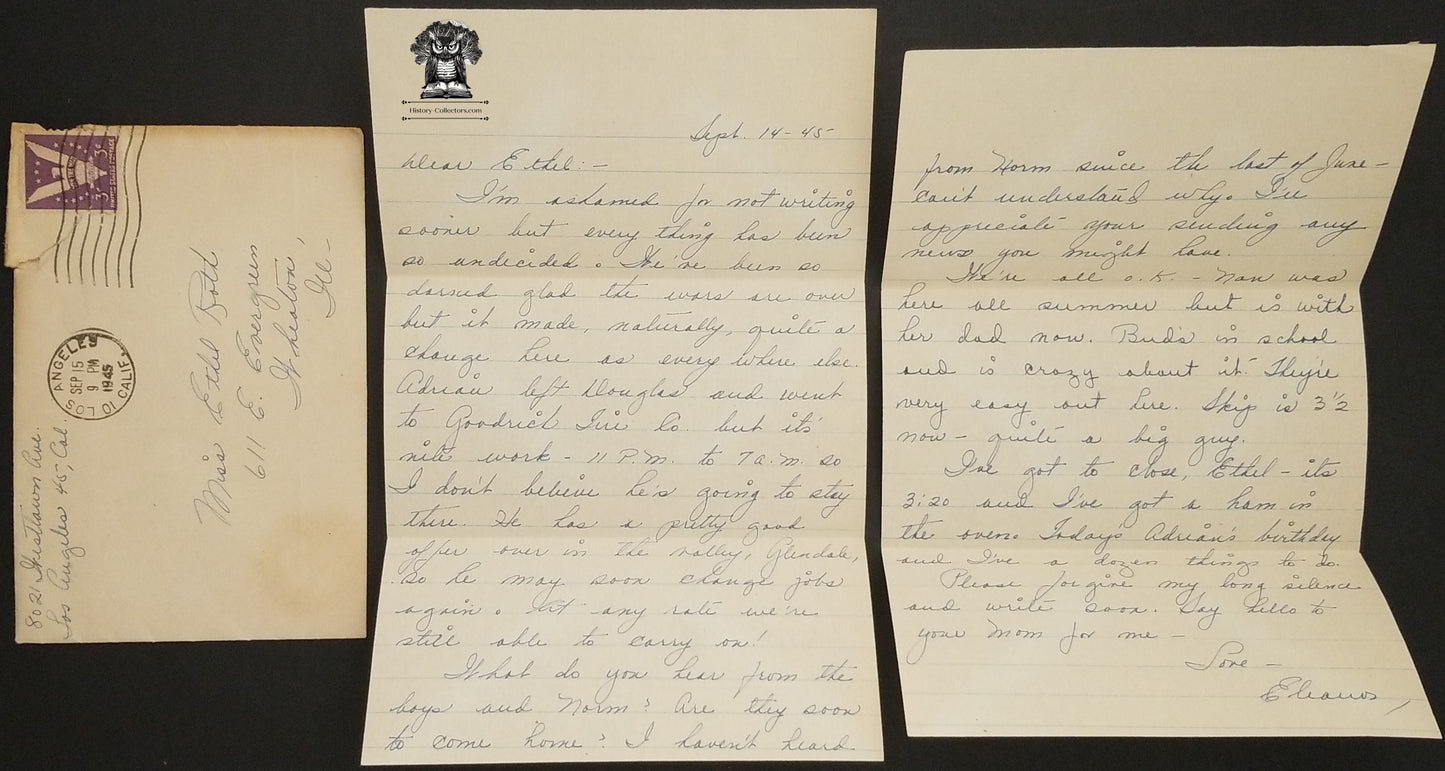 History-Collectors.com
3¢
3¢
UNITED STATES POSTAGE
LOS ANGELES
SEP 15
9 PM
1945
CALIF.
8021 Ave.
Los Angeles 45, Cal.
Miss Ethel Both
611 E. Evergreen
Wheaton,
Ill-
Sept. 14-45-
Dear Ethel:-
I'm ashamed for not writing
sooner but every thing has been
so undecided. We've been so
darned glad the wars are over
but it made, naturally, quite a
change here as every where else.
Adrian left Douglas and went
to Goodrich Tire Co. but it's
nite work - 11 P.M. to 7 a.m. so
I don't believe he's going to stay
there. He has a pretty good
offer over in the valley, Glendale,
so he may soon change jobs
again. At any rate we're
still able to carry on!
What do you hear from the
boys and Norm? Are they soon
to come home? I haven't heard
from Norm since the last of June -
can't understand why. I'll
appreciate your sending any
news you might have.
We're all o.k. - Nan was
here all summer but is with
her dad now. Bud's in school
and is crazy about it. They're
very easy out here. Skip is 3 1/2
now - quite a big guy.
I've got to close, Ethel - its
3:20 and I've got a ham in
the oven. Todays Adrian's birthday
and I've a dozen things to do.
Please forgive my long silence
and write soon. Say hello to
your Mom for me -
Love -
Eleanor